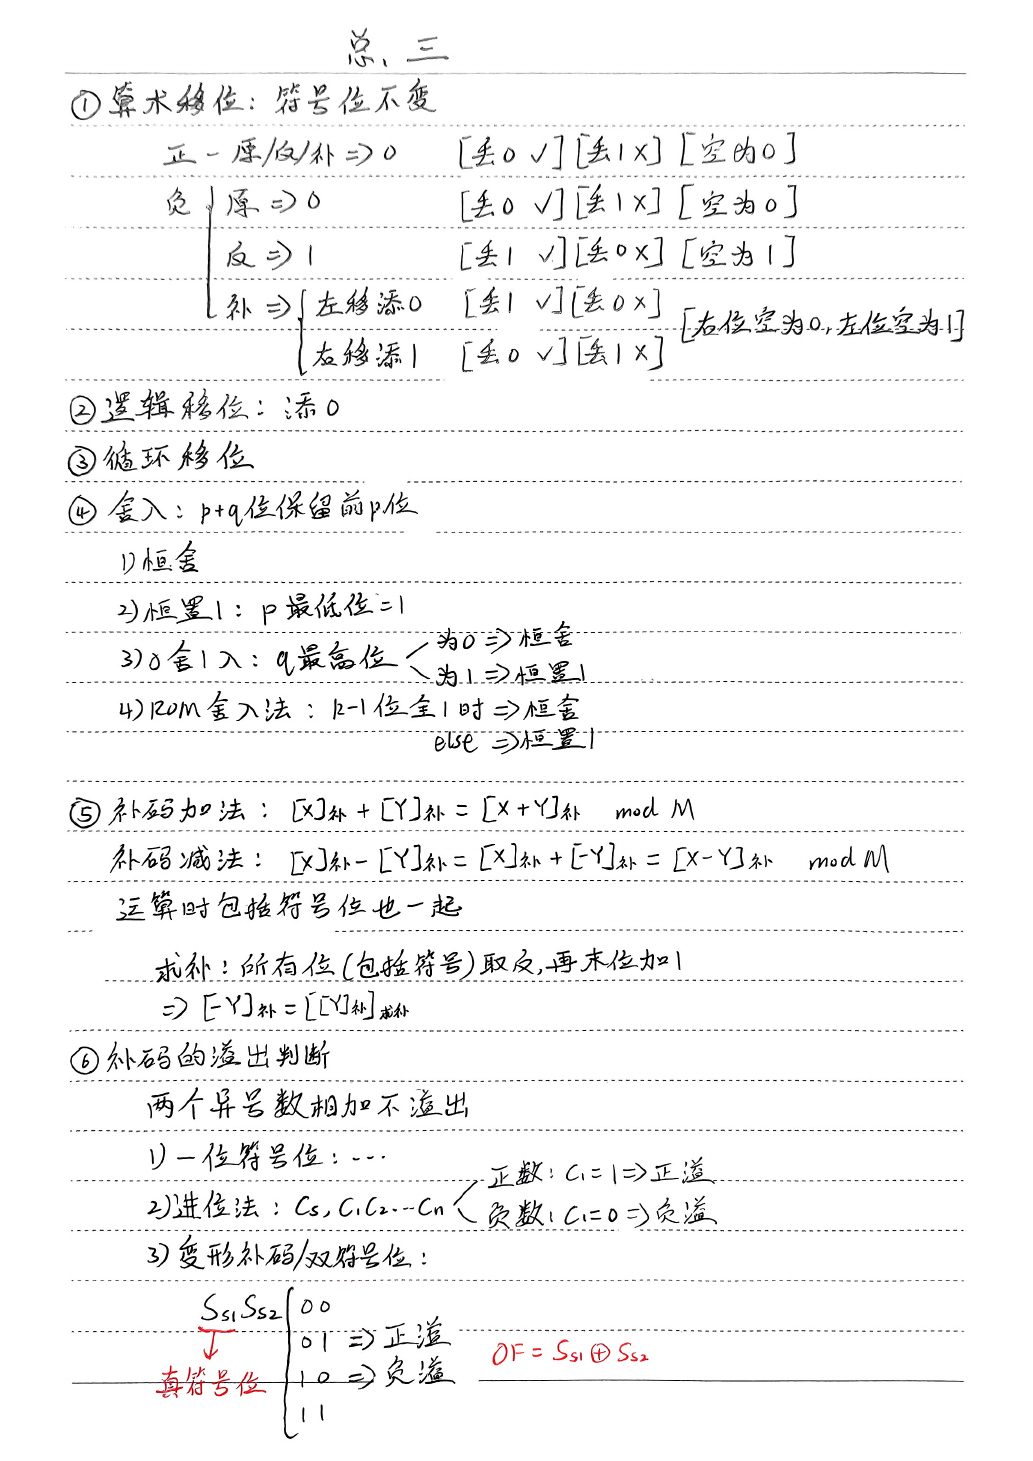 总、三
① 算术移位：符号位不变
正－原/反/补 => 0 [丢0 √] [丢1 ×] [空为0]
负 { 原 => 0 [丢0 √] [丢1 ×] [空为0]
反 => 1 [丢1 √] [丢0 ×] [空为1]
补 => { 左移添0 [丢1 √] [丢0 ×] [右位空为0, 左位空为1]
右移添1 [丢0 √] [丢1 ×]
② 逻辑移位：添0
③ 循环移位
④ 舍入：p+q位保留前p位
1) 恒舍
2) 恒置1：p最低位=1
3) 0舍1入：q最高位 为0 => 恒舍
为1 => 恒置1
4) ROM舍入法：k-1位全1时 => 恒舍
else => 恒置1
⑤ 补码加法：[X]补 + [Y]补 = [X+Y]补 mod M
补码减法：[X]补 - [Y]补 = [X]补 + [-Y]补 = [X-Y]补 mod M
运算时包括符号位也一起
求补：所有位(包括符号)取反,再末位加1
=> [-Y]补 = [[Y]补]求补
⑥ 补码的溢出判断
两个异号数相加不溢出
1) 一位符号位：…
2) 进位法：Cs, C₁C₂…Cn 正数：C₁=1 => 正溢
负数：C₁=0 => 负溢
3) 变形补码/双符号位：
Ss1 Ss2 { 00
01 => 正溢
OF = Ss1 ⊕ Ss2
真符号位
10 => 负溢
11